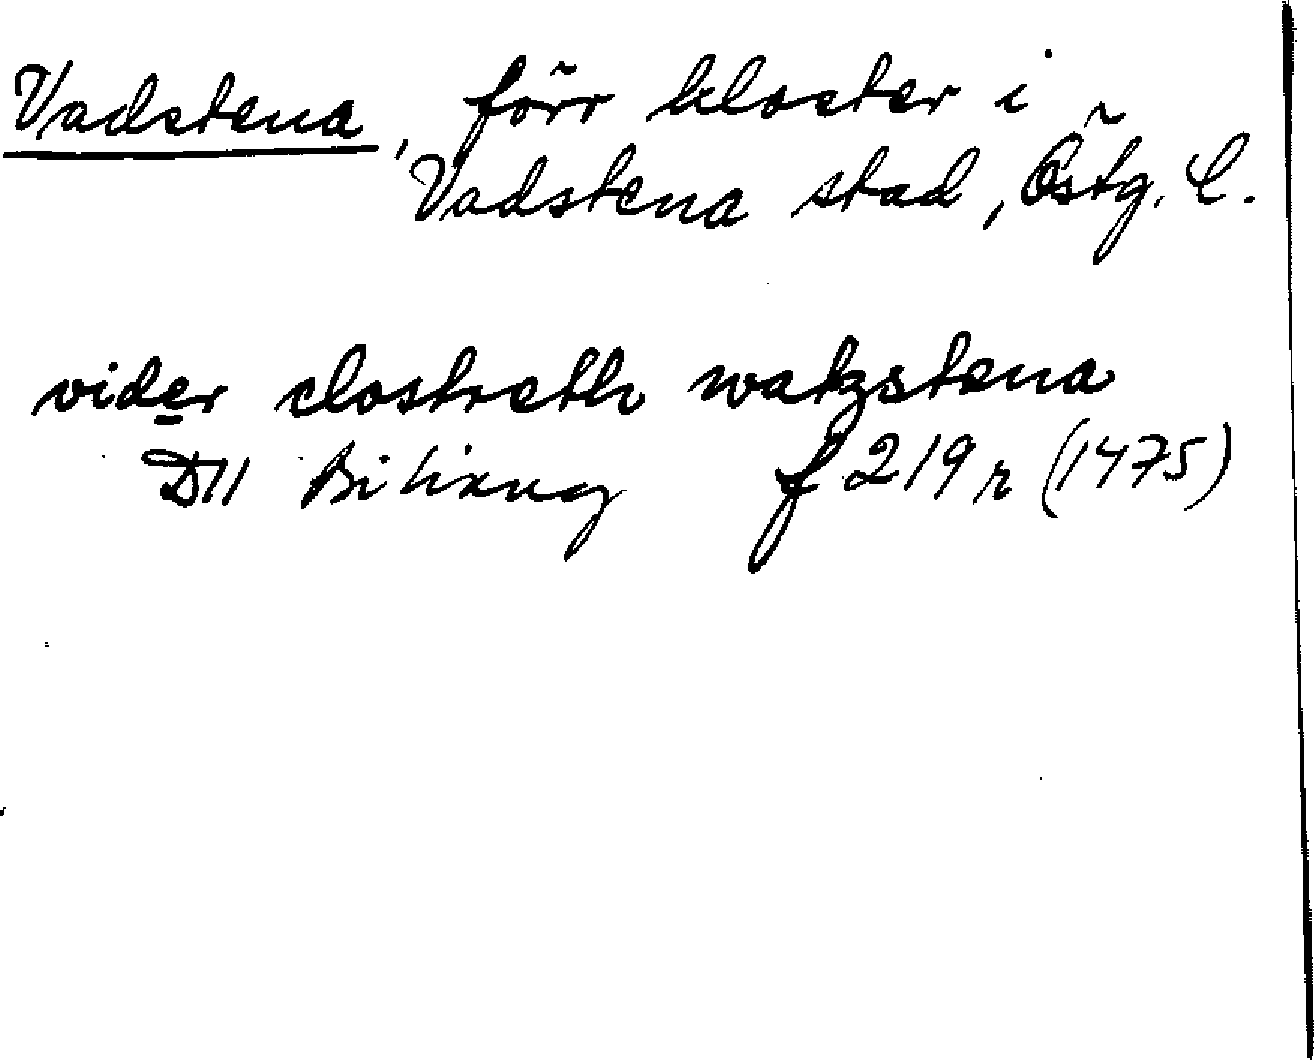 Vadstena, förr kloster i
Vadstena stad, Östg. l.
vider clostreth watzstena
D11 Bihang f 219 r (1475)